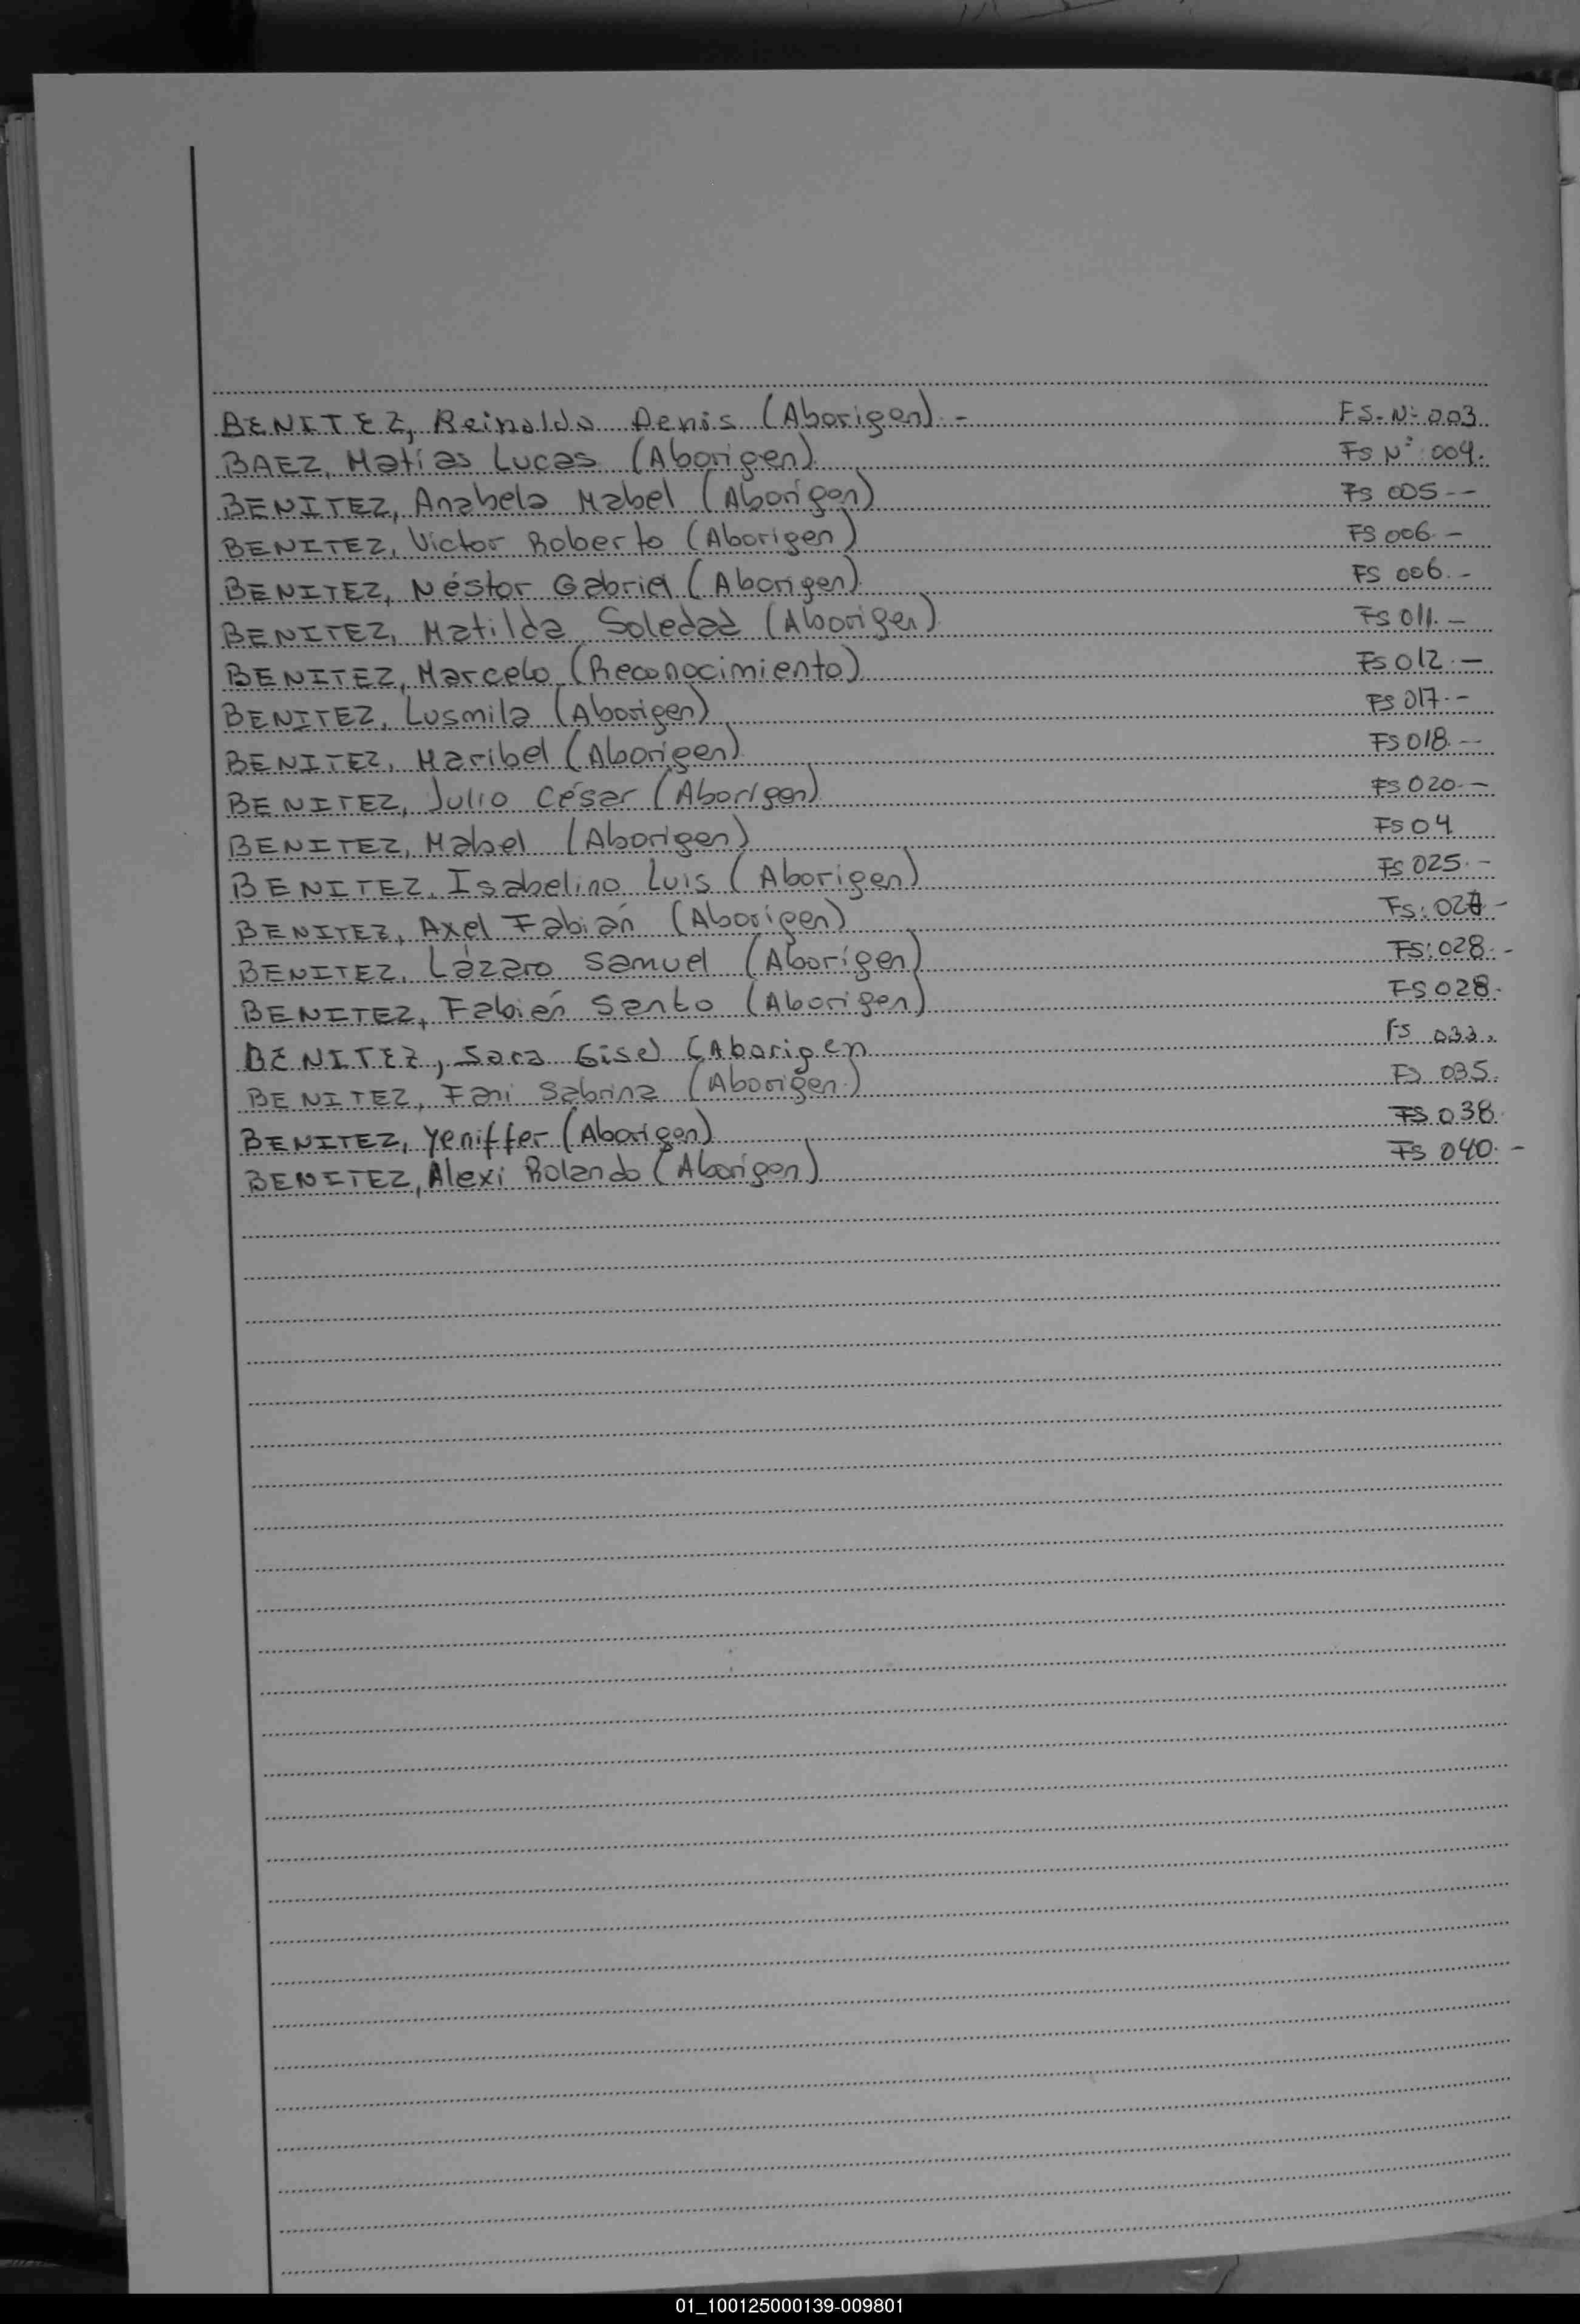 BENITEZ, Reinaldo Denis (Aborigen).- FS-Nº 003
BAEZ, Matías Lucas (Aborigen) FS Nº 004.
BENITEZ, Anabela Mabel (Aborigen) FS 005--
BENITEZ, Victor Roberto (Aborigen) FS 006.-
BENITEZ, Néstor Gabriel (Aborigen) FS 006.-
BENITEZ, Matilda Soledad (Aborigen) FS 011.-
BENITEZ, Marcelo (Reconocimiento) FS 012.-
BENITEZ, Lusmila (Aborigen) FS 017.-
BENITEZ, Maribel (Aborigen) FS 018.-
BENITEZ, Julio César (Aborigen) FS 020.-
BENITEZ, Mabel (Aborigen) FS 04
BENITEZ, Isabelino Luis (Aborigen) FS 025.-
BENITEZ, Axel Fabián (Aborigen) FS:.-
BENITEZ, Lázaro Samuel (Aborigen) FS: 028.-
BENITEZ, Fabián Santo (Aborigen) FS 028.
BENITEZ, Sara Gisel (Aborigen FS 033.
BENITEZ, Fani Sabrina (Aborigen) FS 035.
BENITEZ, Yeniffer (Aborigen) FS 038.
BENITEZ, Alexi Rolando (Aborigen) FS 040.-
01_100125000139-009801